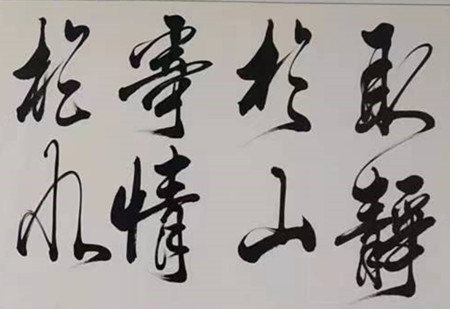 取静
於山
寄情
於水